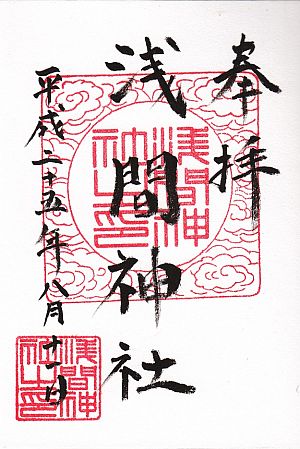 奉拝
浅間神社
平成二十五年八月十一日
浅間神社之印
浅間神社之印